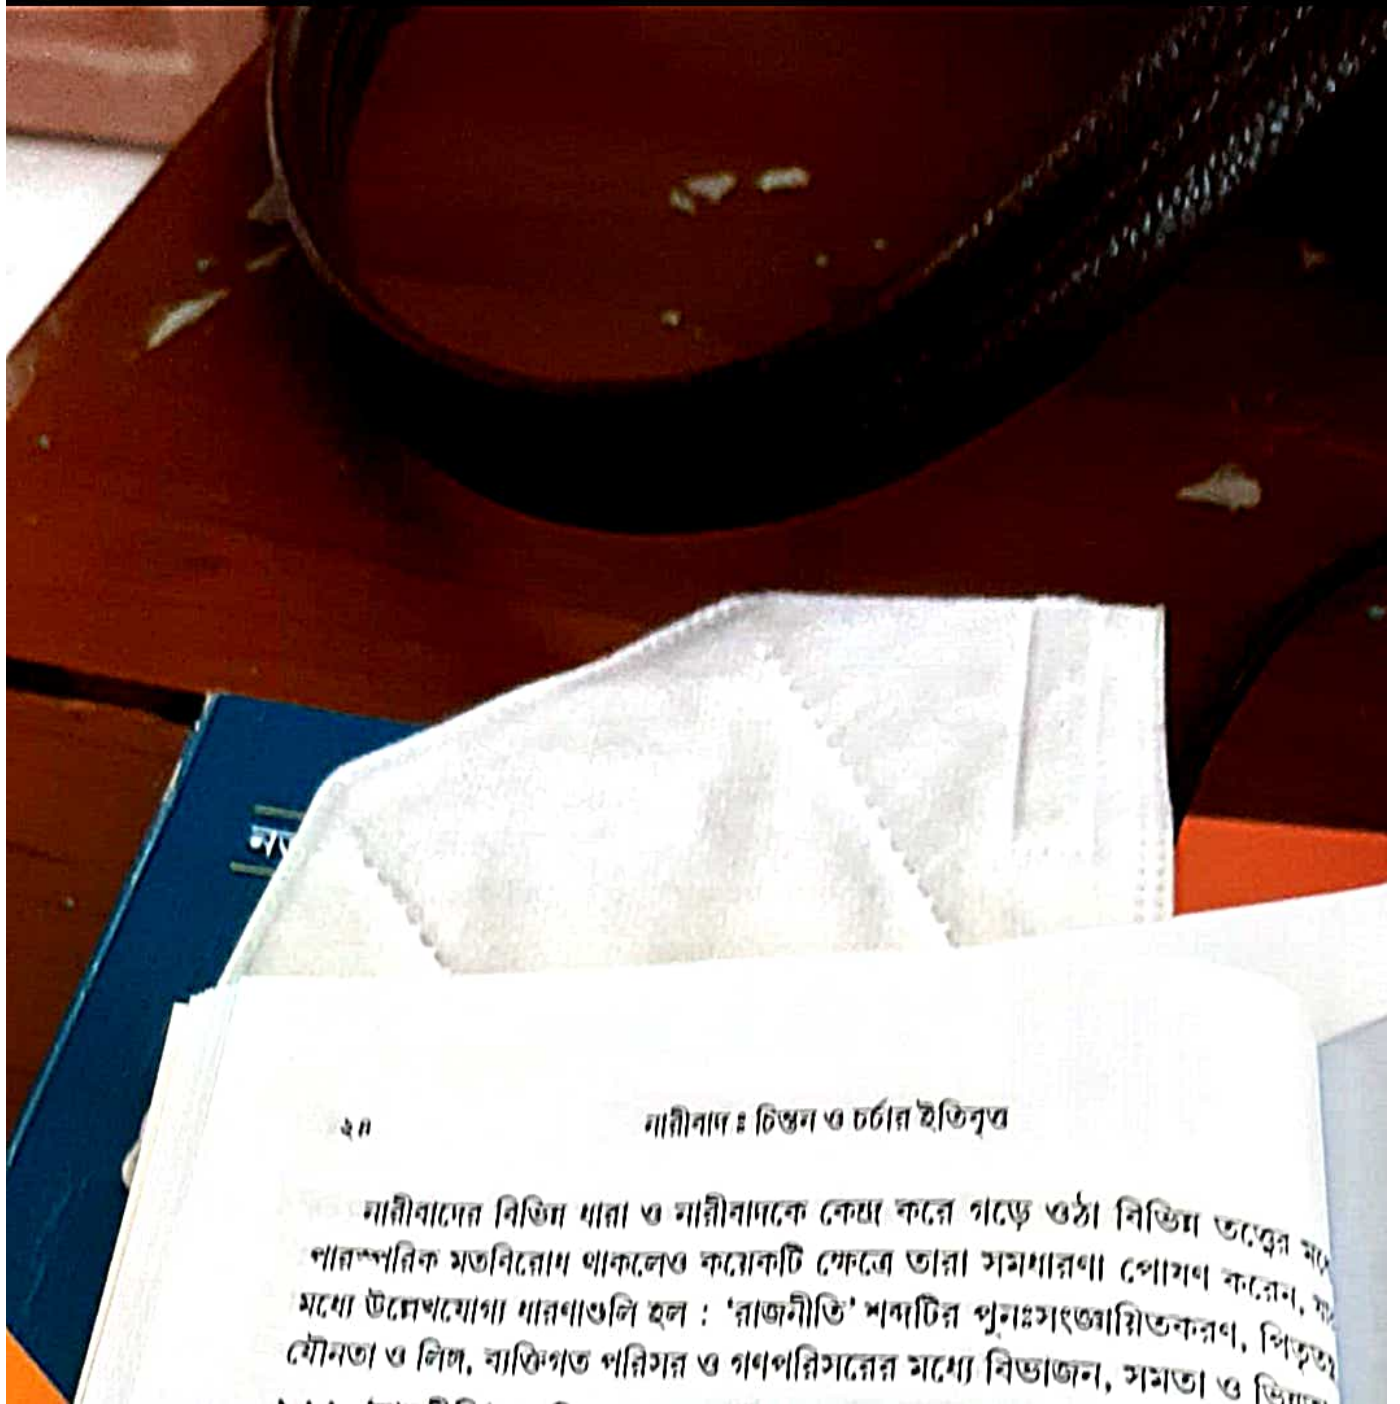 ২৪
নারীবাদ : চিন্তন ও চর্চার ইতিবৃত্ত
নারীবাদের বিভিন্ন ধারা ও নারীবাদকে কেন্দ্র করে গড়ে ওঠা বিভিন্ন তত্ত্বের মধ্যে
পারস্পরিক মতবিরোধ থাকলেও কয়েকটি ক্ষেত্রে তারা সমধারণা পোষণ করেন,
মধ্যে উল্লেখযোগ্য ধারণাগুলি হল : ‘রাজনীতি’ শব্দটির পুনঃসংজ্ঞায়িতকরণ,
যৌনতা ও লিঙ্গ, ব্যক্তিগত পরিসর ও গণপরিসরের মধ্যে বিভাজন, সমতা ও